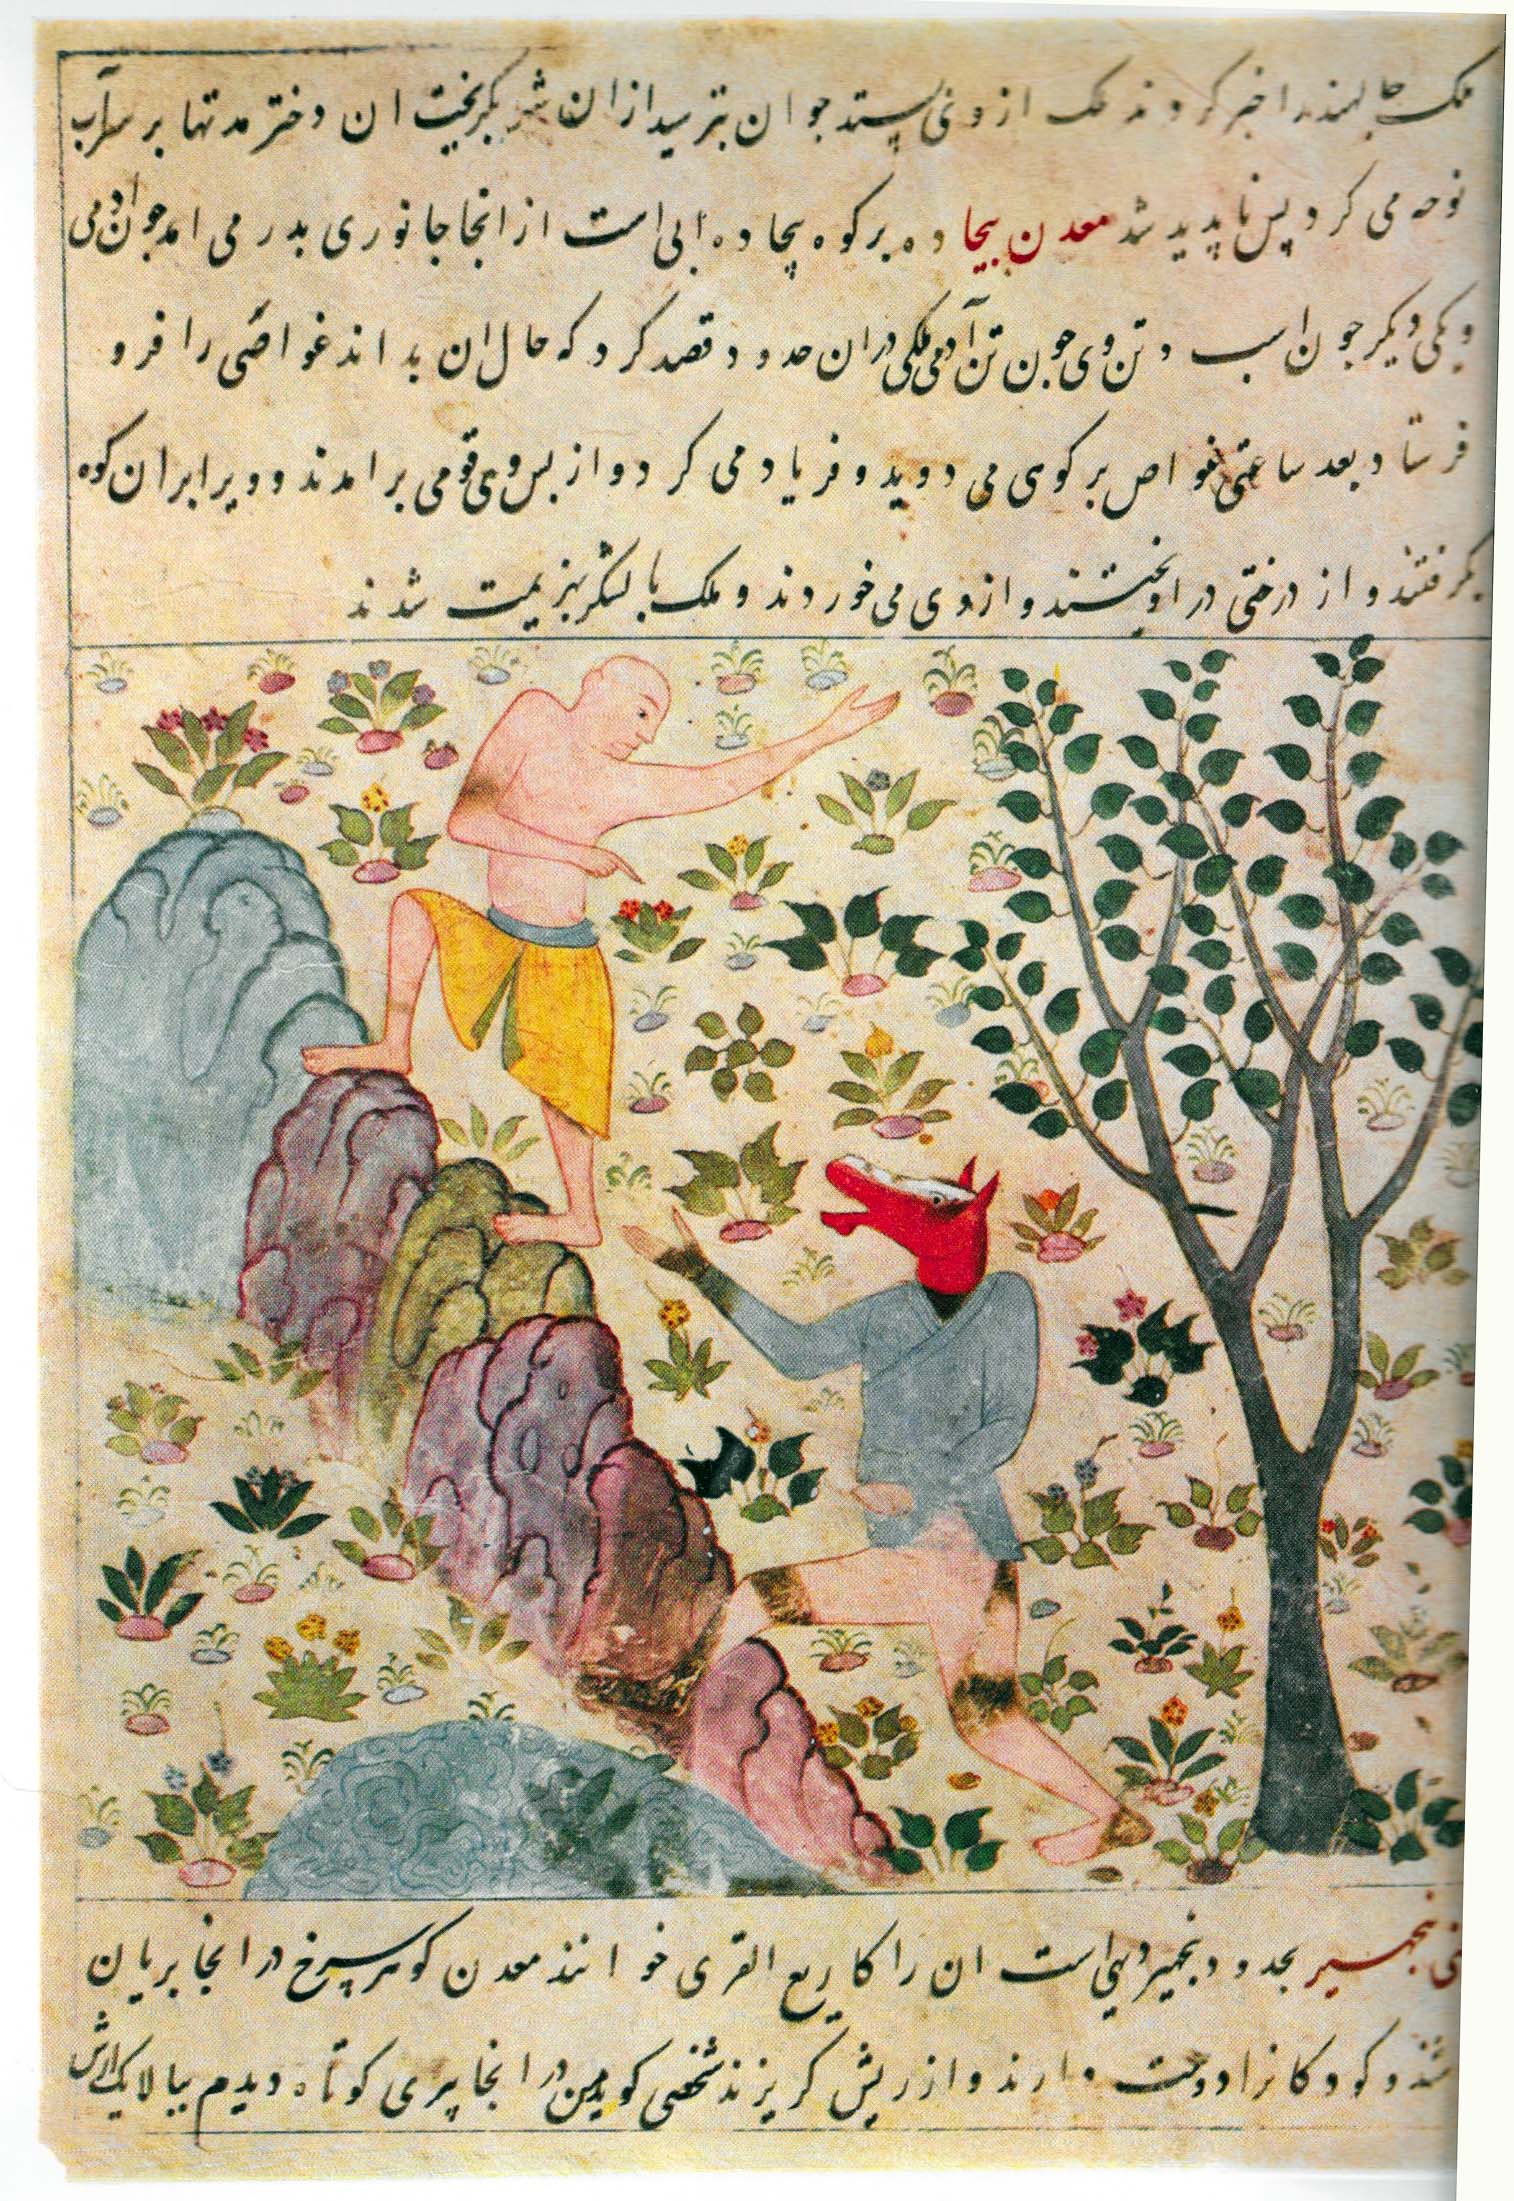 ملک جالهندرا خبر کردند ملک از وی بستد جوان بترسید ازان شهر بگریخت ان دختر مدتها بر سرآب
نوحه می کرد پس ناپدید شد معدن بیجاده بر کوه بیجاده ابی است از انجا جانوری بدر می امد جون ادمی
و یکی دیکر جون اسب و تن وی جون تن آدمی ملکی دران حدود قصد کرد که حال ان بداند غواصی را فرو
فرستاد بعد ساعتی غواص بر کوی می دوید و فریاد می کرد و از بس وی قومی بر امدند و ویرا بران کوه
بگرفتند و از درختی در اویختند و از وی می خوردند و ملک با لشکر بهزیمت شدند
بنجهیر بحدود بنجهیر دیهی است ان را کاریع القری خوانند معدن کوهر سرخ در انجا بریان
شند و کودکانرا دوست دارند و از ریش کریزند شخصی کوید من در انجا پیری کوتاه دیدم ببالا یک ارش